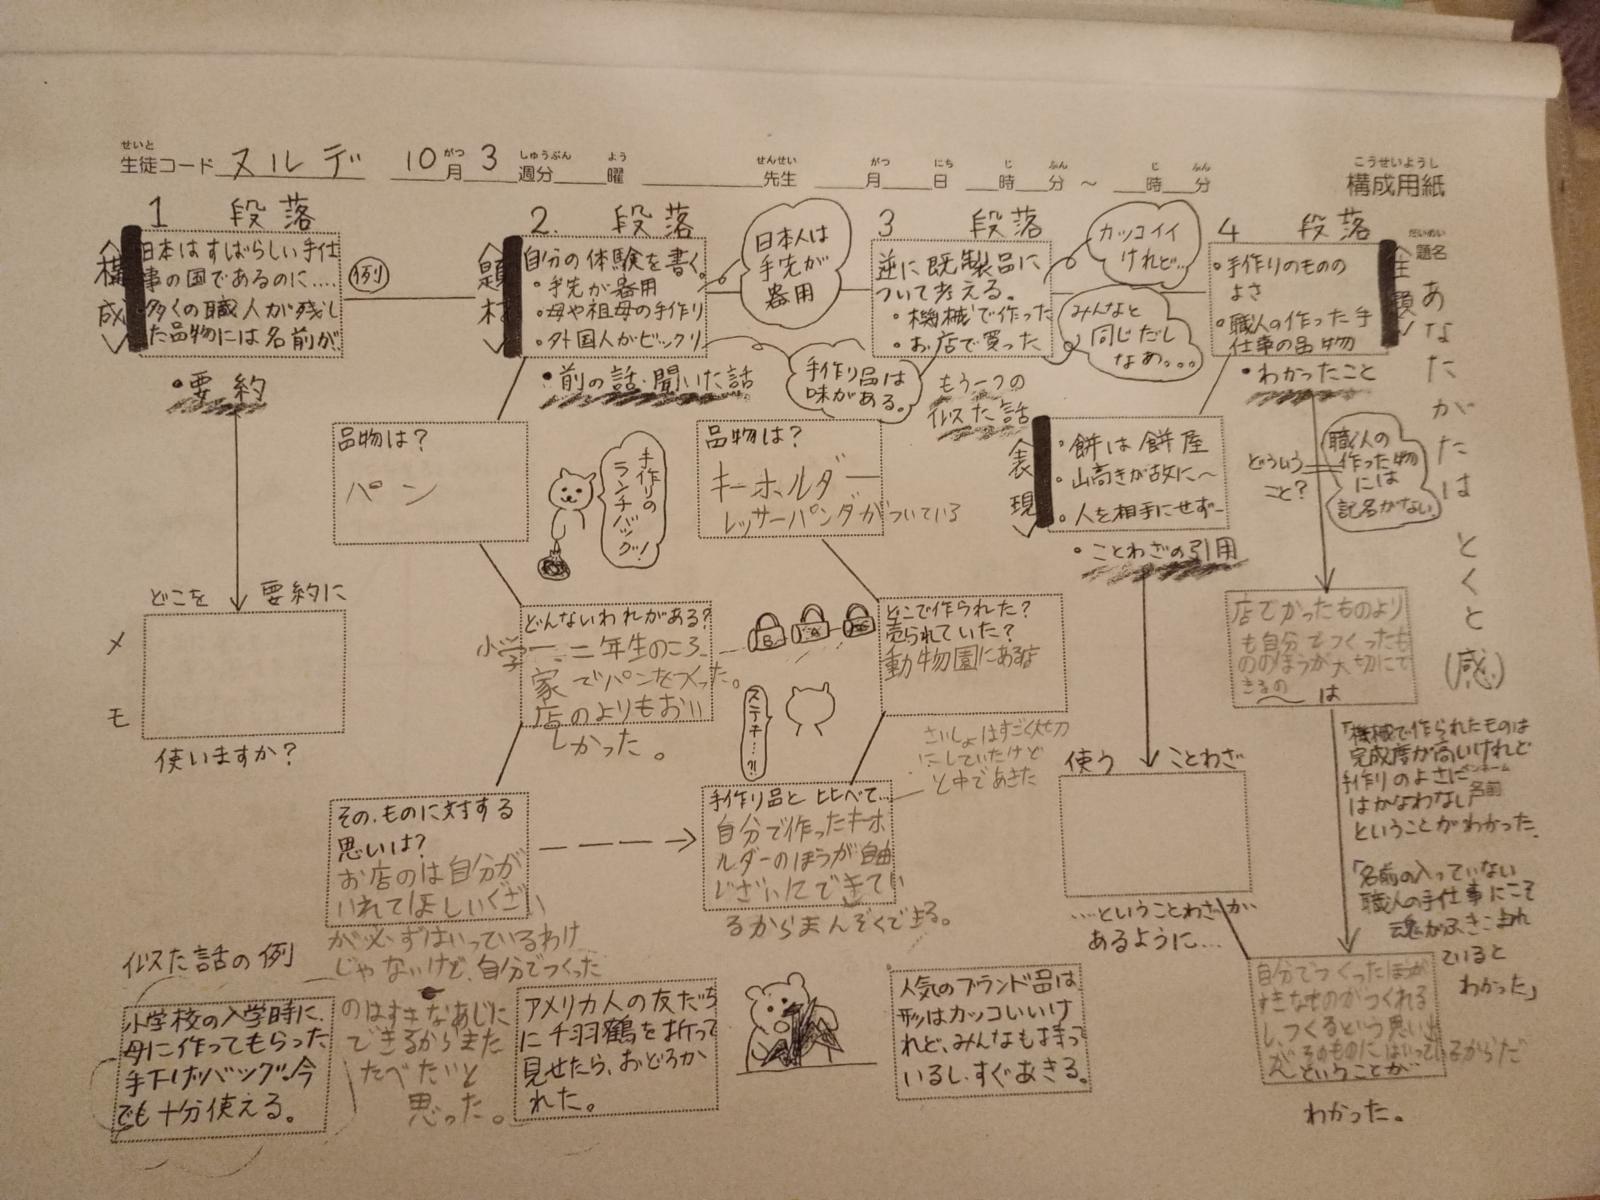 せいと
生徒コード ヌルデ 10月 3週分 曜 先生 月 日 時 分 ～ 時 分
がつ しゅうぶん よう せんせい がつ にち じ ふん じ ふん
こうせいようし
構成用紙
だいめい
題名
あなたがたはとくと(感)
1 段落
構成
日本はすばらしい手仕
事の国であるのに……
多くの職人が残し
た品物には名前が
例
・要約
どこを 要約に
メモ
使いますか？
2. 段落
題材
自分の体験を書く。
・手先が器用
・母や祖母の手作り
・外国人がビックリ
日本人は
手先が
器用
・前の話・聞いた話
手作り品は
味がある。
品物は？
パン
手作りの
ランチバッグ！
どんないわれがある？
小学一、二年生のころ
家でパンをつくった。
店のよりもおい
しかった。
その、ものに対する
思いは？
お店のは自分が
いれてほしいぐざい
が必ずはいっているわけ
じゃないけど、自分でつくった
のはすきなあじに
できるからまた
たべたいと
思った。
3 段落
逆に既製品に
ついて考える。
・機械で作った
・お店で買った
カッコイイ
けれど…
みんなと
同じだし
なあ。。。
もう一つの
似た話
品物は？
キーホルダー
レッサーパンダがついている
どこで作られた？
売られていた？
動物園にある店
さいしょはすごく大切
にしていたけど
と中であきた
ステキ…?!
手作り品と比べて…
自分で作ったキーホ
ルダーのほうが自由
じざいにできてい
るからまんぞくできる。
表現
・餅は餅屋
・山高きが故に～
・人を相手にせず－
・ことわざの引用
使う ことわざ
…ということわざが
あるように…
4 段落
主題
・手作りのものの
よさ
・職人の作った手
仕事の品物
・わかったこと
どういう
こと？
職人の
作った物
には
記名がない
店でかったものより
も自分でつくったも
ののほうが大切にで
きるの
～は
「機械で作られたものは
完成度が高いけれど
手作りのよさに
はかなわない」
名前
ということがわかった。
「名前の入っていない
職人の手仕事にこそ
魂がふきこまれ
ていると
わかった」
自分でつくったほうが
すきなものがつくれる
し、つくるという思い出
が そのものにはいっているからだ
ということが
わかった。
似た話の例
小学校の入学時に、
母に作ってもらった
手下げバッグ。今
でも十分使える。
アメリカ人の友だち
に千羽鶴を折って
見せたら、おどろか
れた。
人気のブランド品は
形はカッコいいけ
れど、みんなも持って
いるし、すぐあきる。